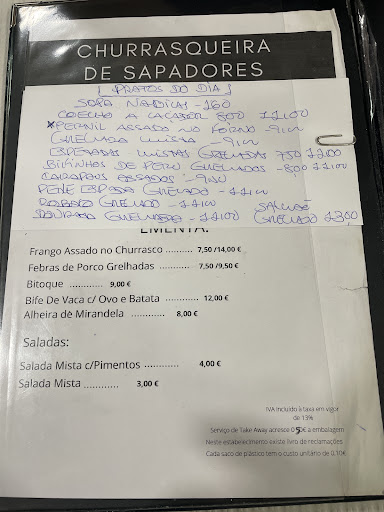 CHURRASQUEIRA
DE SAPADORES
[PRATOS DO DIA]
SOPA NABICAS - 1.60
COELHO A CAÇADOR 800 11.00
PERNIL ASSADO NO FORNO - 9.00
GRELHADA MISTA - 9.00
ESPETADAS MISTAS GRELHADAS 750 12.00
BIFINHOS DE PERU GRELHADOS - 800 11.00
CARAPAUS ASSADOS - 9.50
PEIXE ESPADA GRELHADO - 11.00
ROBALO GRELHADO - 11.00 SALMÃO
DOURADA GRELHADA - 11.00 GRELHADO 13.00
EMENTA:
Frango Assado no Churrasco .......... 7,50 /14,00 €
Febras de Porco Grelhadas ............ 7,50 /9,50 €
Bitoque ............ 9,00 €
Bife De Vaca c/ Ovo e Batata ............ 12,00 €
Alheira de Mirandela ............ 8,00 €
Saladas:
Salada Mista c/Pimentos ............ 4,00 €
Salada Mista ............ 3,00 €
IVA incluído à taxa em vigor
de 13%
Serviço de Take Away acresce 0.50€ a embalagem
Neste estabelecimento existe livro de reclamações
Cada saco de plástico tem o custo unitário de 0,10€